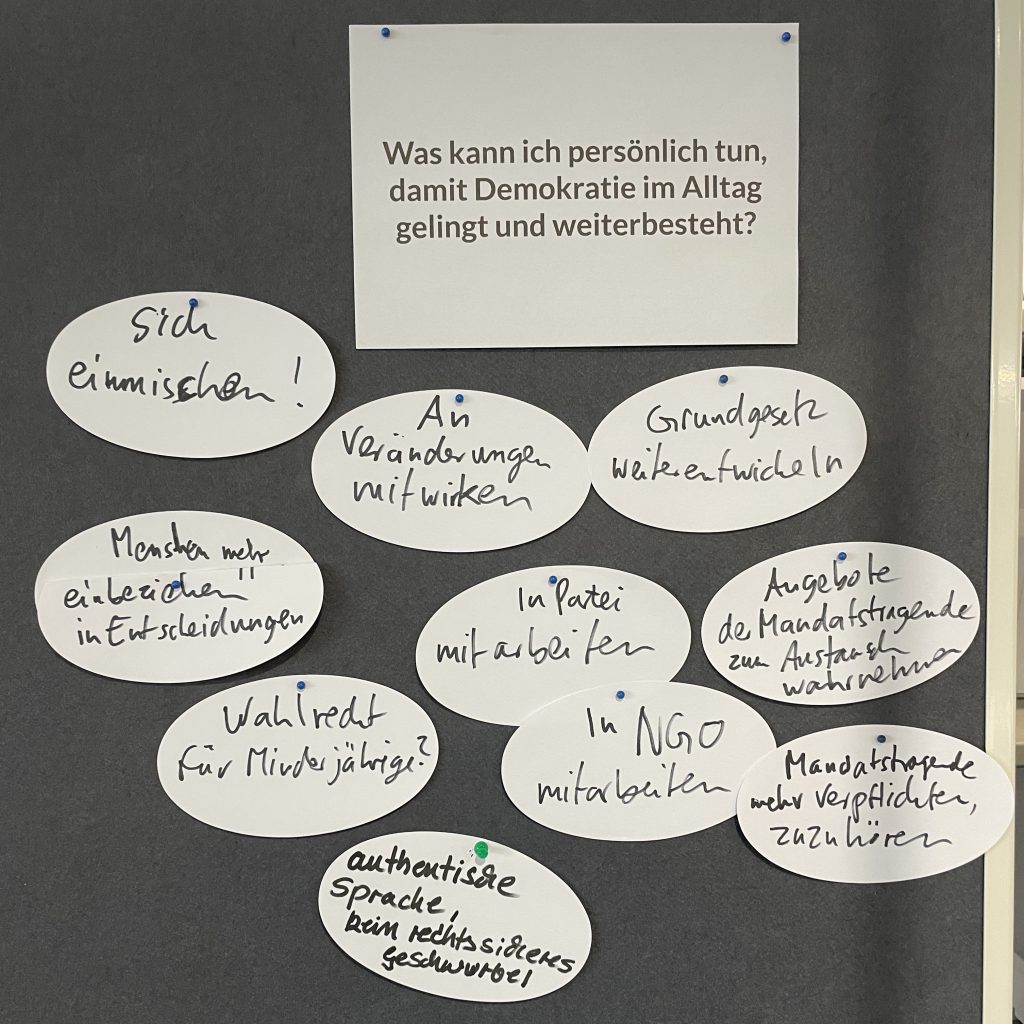 Was kann ich persönlich tun,
damit Demokratie im Alltag
gelingt und weiterbesteht?
Sich
einmischen!
An
Veränderungen
mitwirken
Grundgesetz
weiterentwickeln
Menschen mehr
einbeziehen
in Entscheidungen
In Partei
mitarbeiten
Angebote
der Mandatstragende
zum Austausch
wahrnehmen
Wahlrecht
für Minderjährige?
In NGO
mitarbeiten
Mandatstragende
mehr verpflichten,
zuzuhören
authentische
Sprache,
kein rechtssicheres
geschwurbel